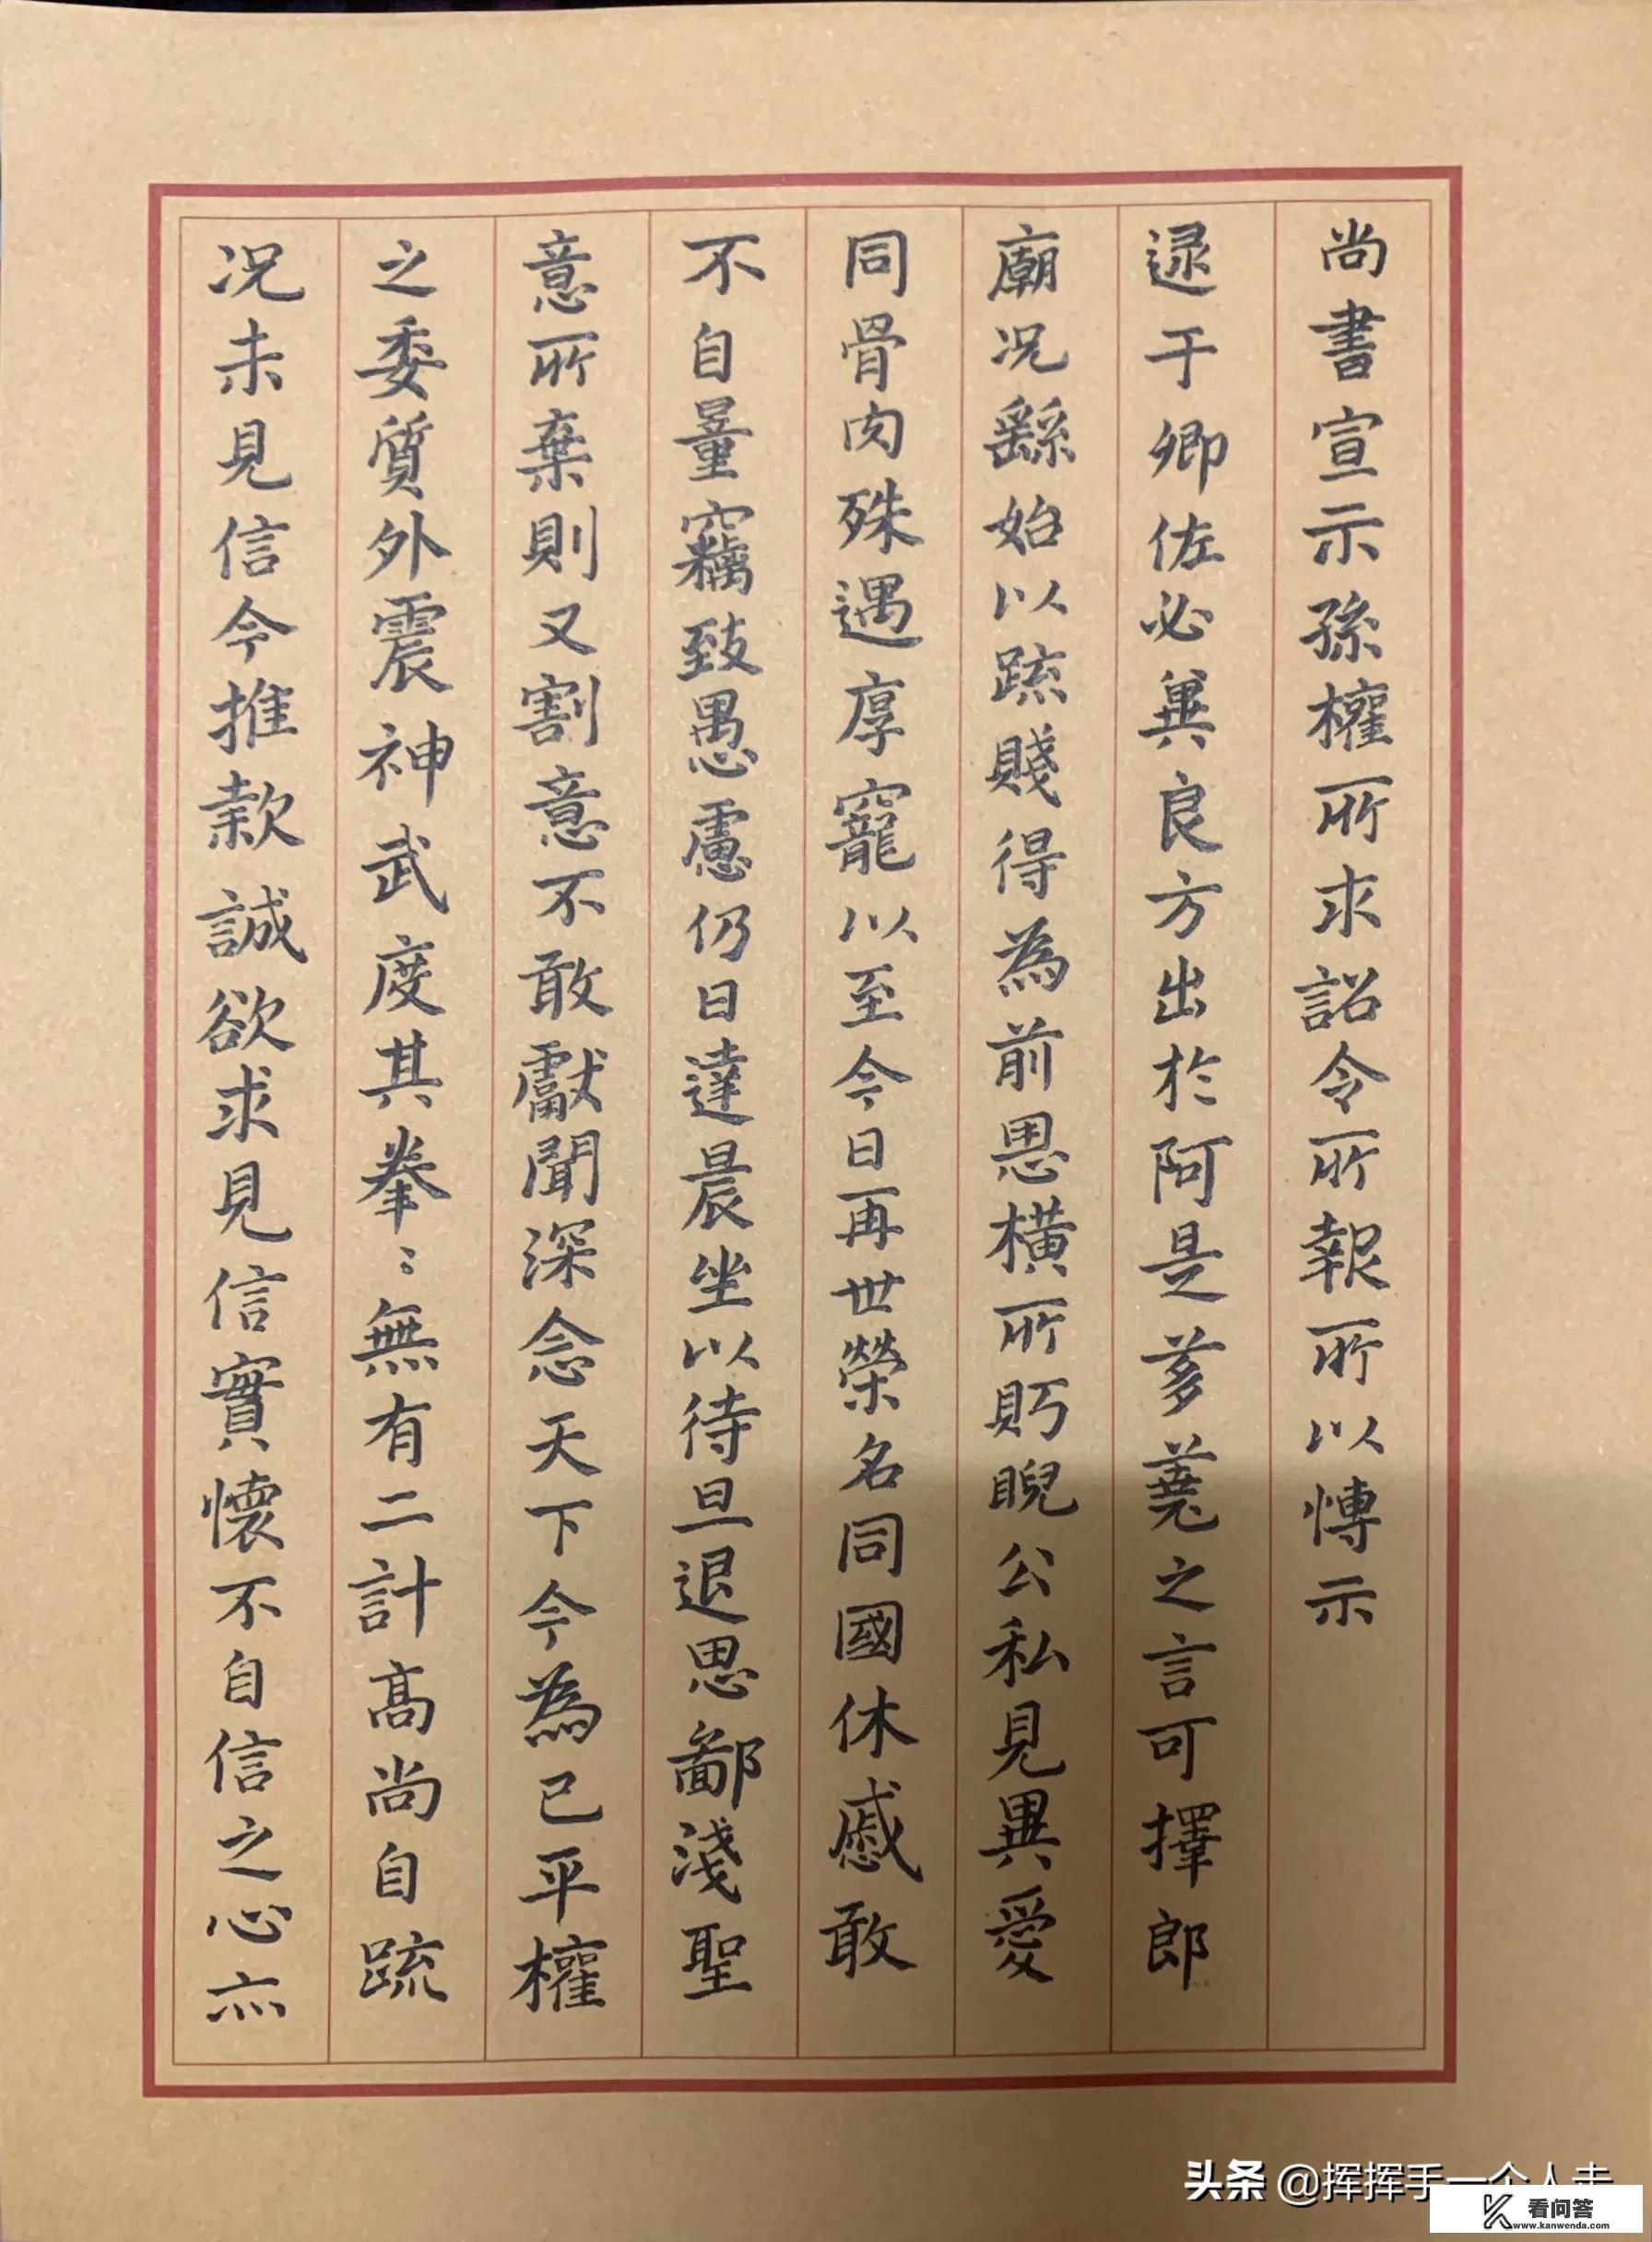 尚書宣示孫權所求詔令所報所以慱示
逯于卿佐必兾良方出於阿是芻蕘之言可擇郎
廟况繇始以疏賤得為前恩橫所眄睨公私見異愛
同骨肉殊遇厚寵以至今日再世榮名同國休慼敢
不自量竊致愚慮仍日達晨坐以待旦退思鄙淺聖
意所棄則又割意不敢獻聞深念天下今為已平權
之委質外震神武度其拳〻無有二計高尚自疏
况未見信今推款誠欲求見信實懷不自信之心亦
头条 @挥挥手一个人走
看问答
www.kanwenda.com